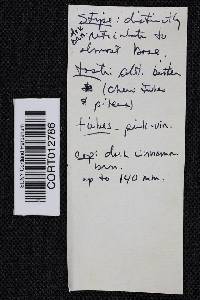 Stipe: distinctly
reticulate to
almost base.
taste sl. bitter
(chew tubes
& pileus)
tubes - pink-vin.
cap: dark cinnamon
brn.
up to 140 mm.
CORT012786